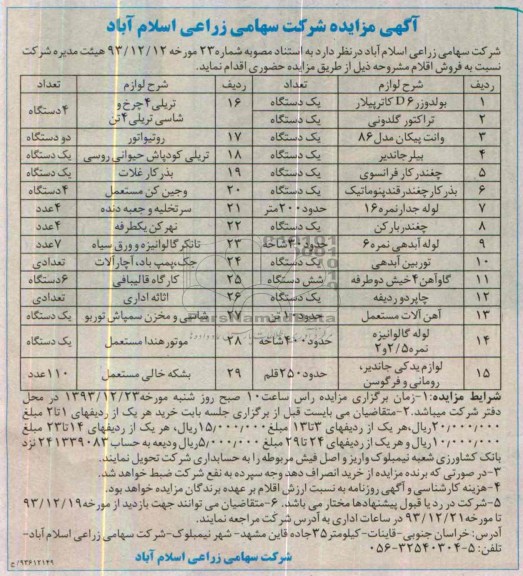 آگهی مزایده شرکت سهامی زراعی اسلام آباد
شرکت سهامی زراعی اسلام آباد در نظر دارد به استناد مصوبه شماره ۲۳ مورخه ۹۳/۱۲/۱۲ هیئت مدیره شرکت
نسبت به فروش اقلام مشروحه ذیل از طریق مزایده حضوری اقدام نماید.
ردیف شرح لوازم تعداد ردیف شرح لوازم تعداد
۱ بولدوزر D۶ کاترپیلار یک دستگاه ۱۶ تریلی ۴ چرخ و شاسی تریلی ۴ تن ۴ دستگاه
۲ تراکتور گلدونی یک دستگاه
۳ وانت پیکان مدل ۸۶ یک دستگاه ۱۷ روتیواتور دو دستگاه
۴ بیلر جاندیر یک دستگاه ۱۸ تریلی کودپاش حیوانی روسی یک دستگاه
۵ چغندر کار فرانسوی یک دستگاه ۱۹ بذر کار غلات یک دستگاه
۶ بذر کار چغندر قند پنوماتیک یک دستگاه ۲۰ وجین کن مستعمل ۴ دستگاه
۷ لوله جدار نمره ۱۶ حدود ۲۰۰ متر ۲۱ سر تخلیه و جعبه دنده ۴ عدد
۸ چغندر بار کن یک دستگاه ۲۲ نهر کن یکطرفه ۴ عدد
۹ لوله آبدهی نمره ۶ حدود ۳۰ شاخه ۲۳ تانکر گالوانیزه و ورق سیاه ۷ عدد
۱۰ توربین آبدهی یک دستگاه ۲۴ جک، پمپ باد، آچار آلات تعدادی
۱۱ گاوآهن ۴ خیش دوطرفه شش دستگاه ۲۵ کارگاه قالیبافی ۶ دستگاه
۱۲ چاپر دو ردیفه یک دستگاه ۲۶ اثاثه اداری تعدادی
۱۳ آهن آلات مستعمل حدود ۱۰ تن ۲۷ شاسی و مخزن سمپاش توربو یک دستگاه
۱۴ لوله گالوانیزه نمره ۲/۵ و ۲ حدود ۴۰۰ شاخه ۲۸ موتور هندا مستعمل یک دستگاه
۱۵ لوازم یدکی جاندیر، رومانی و فرگوسن حدود ۲۵۰ قلم ۲۹ بشکه خالی مستعمل ۱۱۰ عدد
شرایط مزایده: ۱- زمان برگزاری مزایده راس ساعت ۱۰ صبح روز شنبه مورخه ۱۳۹۳/۱۲/۲۳ در محل
دفتر شرکت میباشد. ۲- متقاضیان می بایست قبل از برگزاری جلسه بابت خرید هر یک از ردیفهای ۱ تا ۲ مبلغ
۲۰/۰۰۰/۰۰۰ ریال، هر یک از ردیفهای ۳ تا ۱۳ مبلغ ۱۵/۰۰۰/۰۰۰ ریال، هر یک از ردیفهای ۱۴ تا ۲۳ مبلغ
۱۰/۰۰۰/۰۰۰ ریال و هر یک از ردیفهای ۲۴ تا ۲۹ مبلغ ۵/۰۰۰/۰۰۰ ریال ودیعه به حساب ۲۴۱۳۳۹۰۸۳ نزد
بانک کشاورزی شعبه نیمبلوک واریز و اصل فیش مربوطه را به حسابداری شرکت تحویل نمایند.
۳- در صورتی که برنده مزایده از خرید انصراف دهد وجه سپرده به نفع شرکت ضبط خواهد شد.
۴- هزینه کارشناسی و آگهی روزنامه به نسبت ارزش اقلام بر عهده برندگان مزایده خواهد بود.
۵- شرکت در رد یا قبول پیشنهادها مختار می باشد. ۶- متقاضیان می توانند جهت بازدید از مورخه ۹۳/۱۲/۱۹
تا مورخه ۹۳/۱۲/۲۱ در ساعات اداری به آدرس شرکت مراجعه نمایند.
آدرس: خراسان جنوبی- قاینات- کیلومتر ۳۵ جاده قاین مشهد- شهر نیمبلوک- شرکت سهامی زراعی اسلام آباد-
تلفن: ۵-۳۲۵۴۰۳۰۴-۰۵۶
شرکت سهامی زراعی اسلام آباد
۹۳۶۱۲۱۴۹/ج